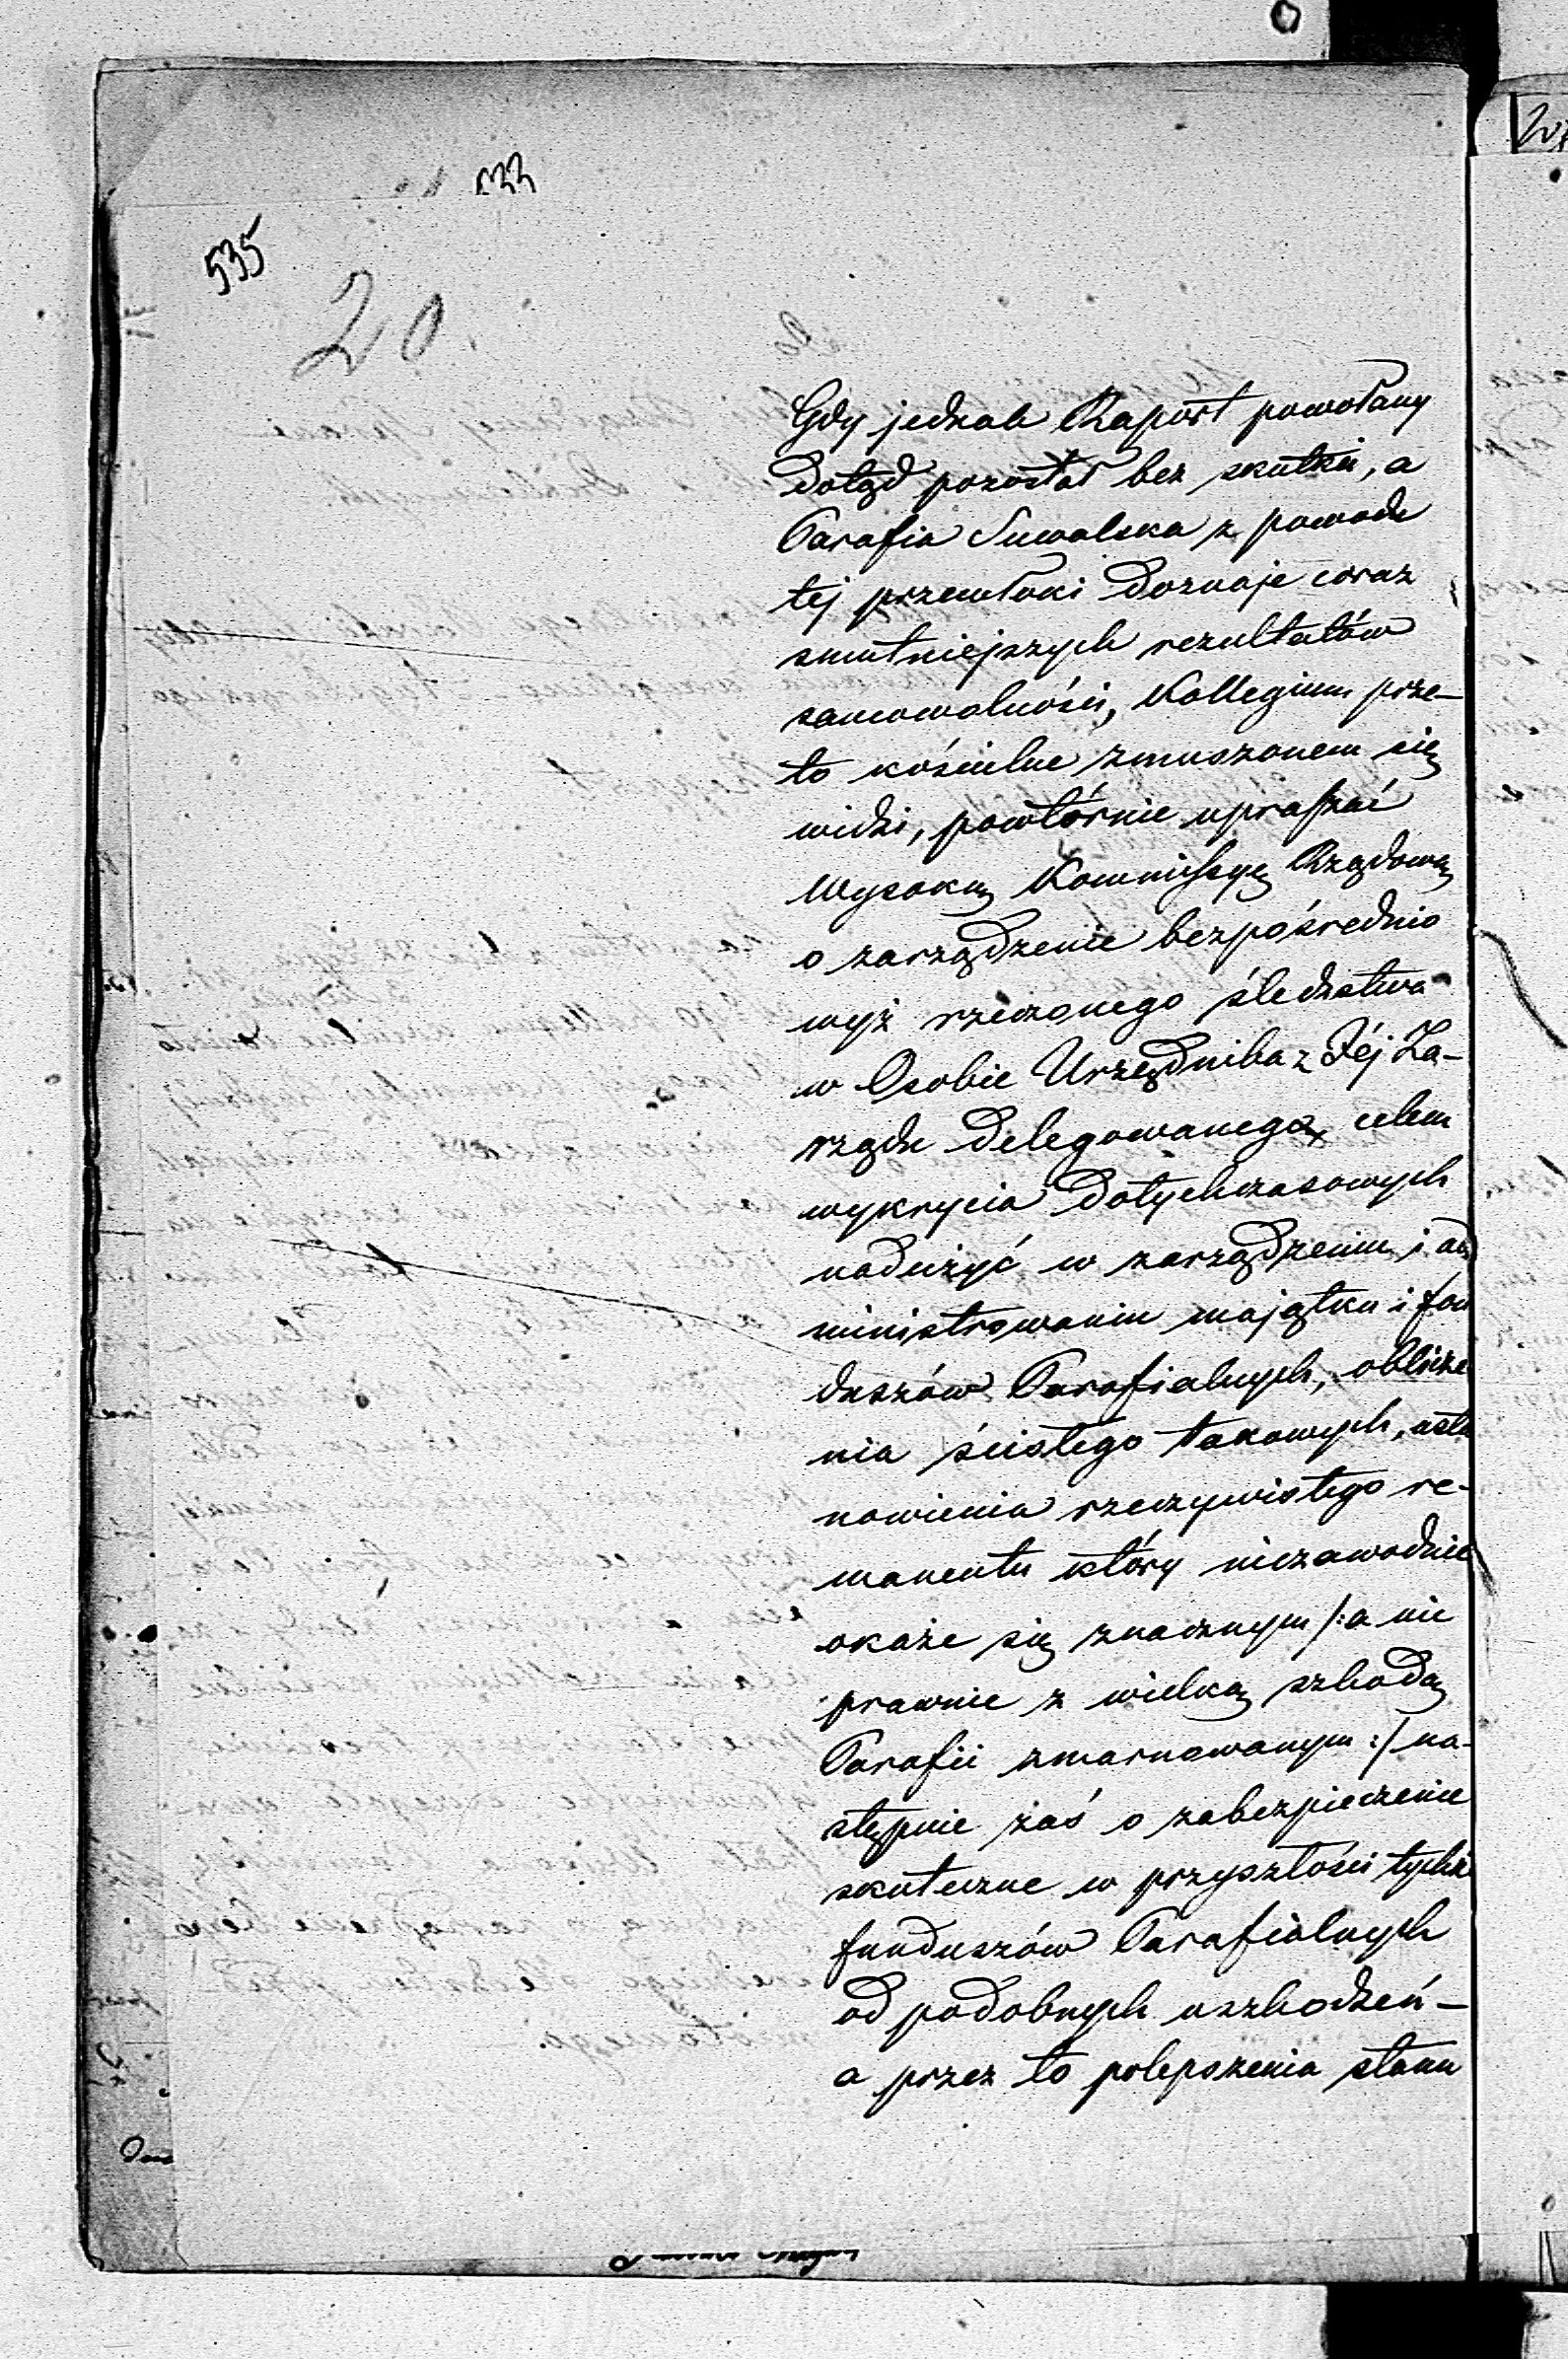 535
20.
Gdy jednak Raport powołany
dotąd pozostał bez skutku, a
Parafia Suwalska z powodu
tej przewłoki doznaje coraz
smutniejszych rezultatów
samowolności, Kollegium prze-
to kościelne zmuszonem się
widzi, powtórnie upraszać
Wysoką Kommissyę Rządową
o zarządzenie bezpośrednio
wyż rzeczonego śledztwa
w Osobie Urzędnika z Jéj Za-
rządu delegowanego, celem
wykrycia dotychczasowych
nadużyć w zarządzeniu i ad
ministrowaniu majątku i fun
duszów Parafialnych, oblicze
nia ścisłego takowych, usta
nowienia rzeczywistego re-
manentu który niezawodnie
okaże się znacznym /: a nie
prawnie z wielką szkodą
Parafii zmarnowanym :/ na-
stępnie zaś o zabezpieczenie
skuteczne w przyszłości tychże
funduszów Parafialnych
od podobnych uszkodzeń –
a przez to polepszenia stanu